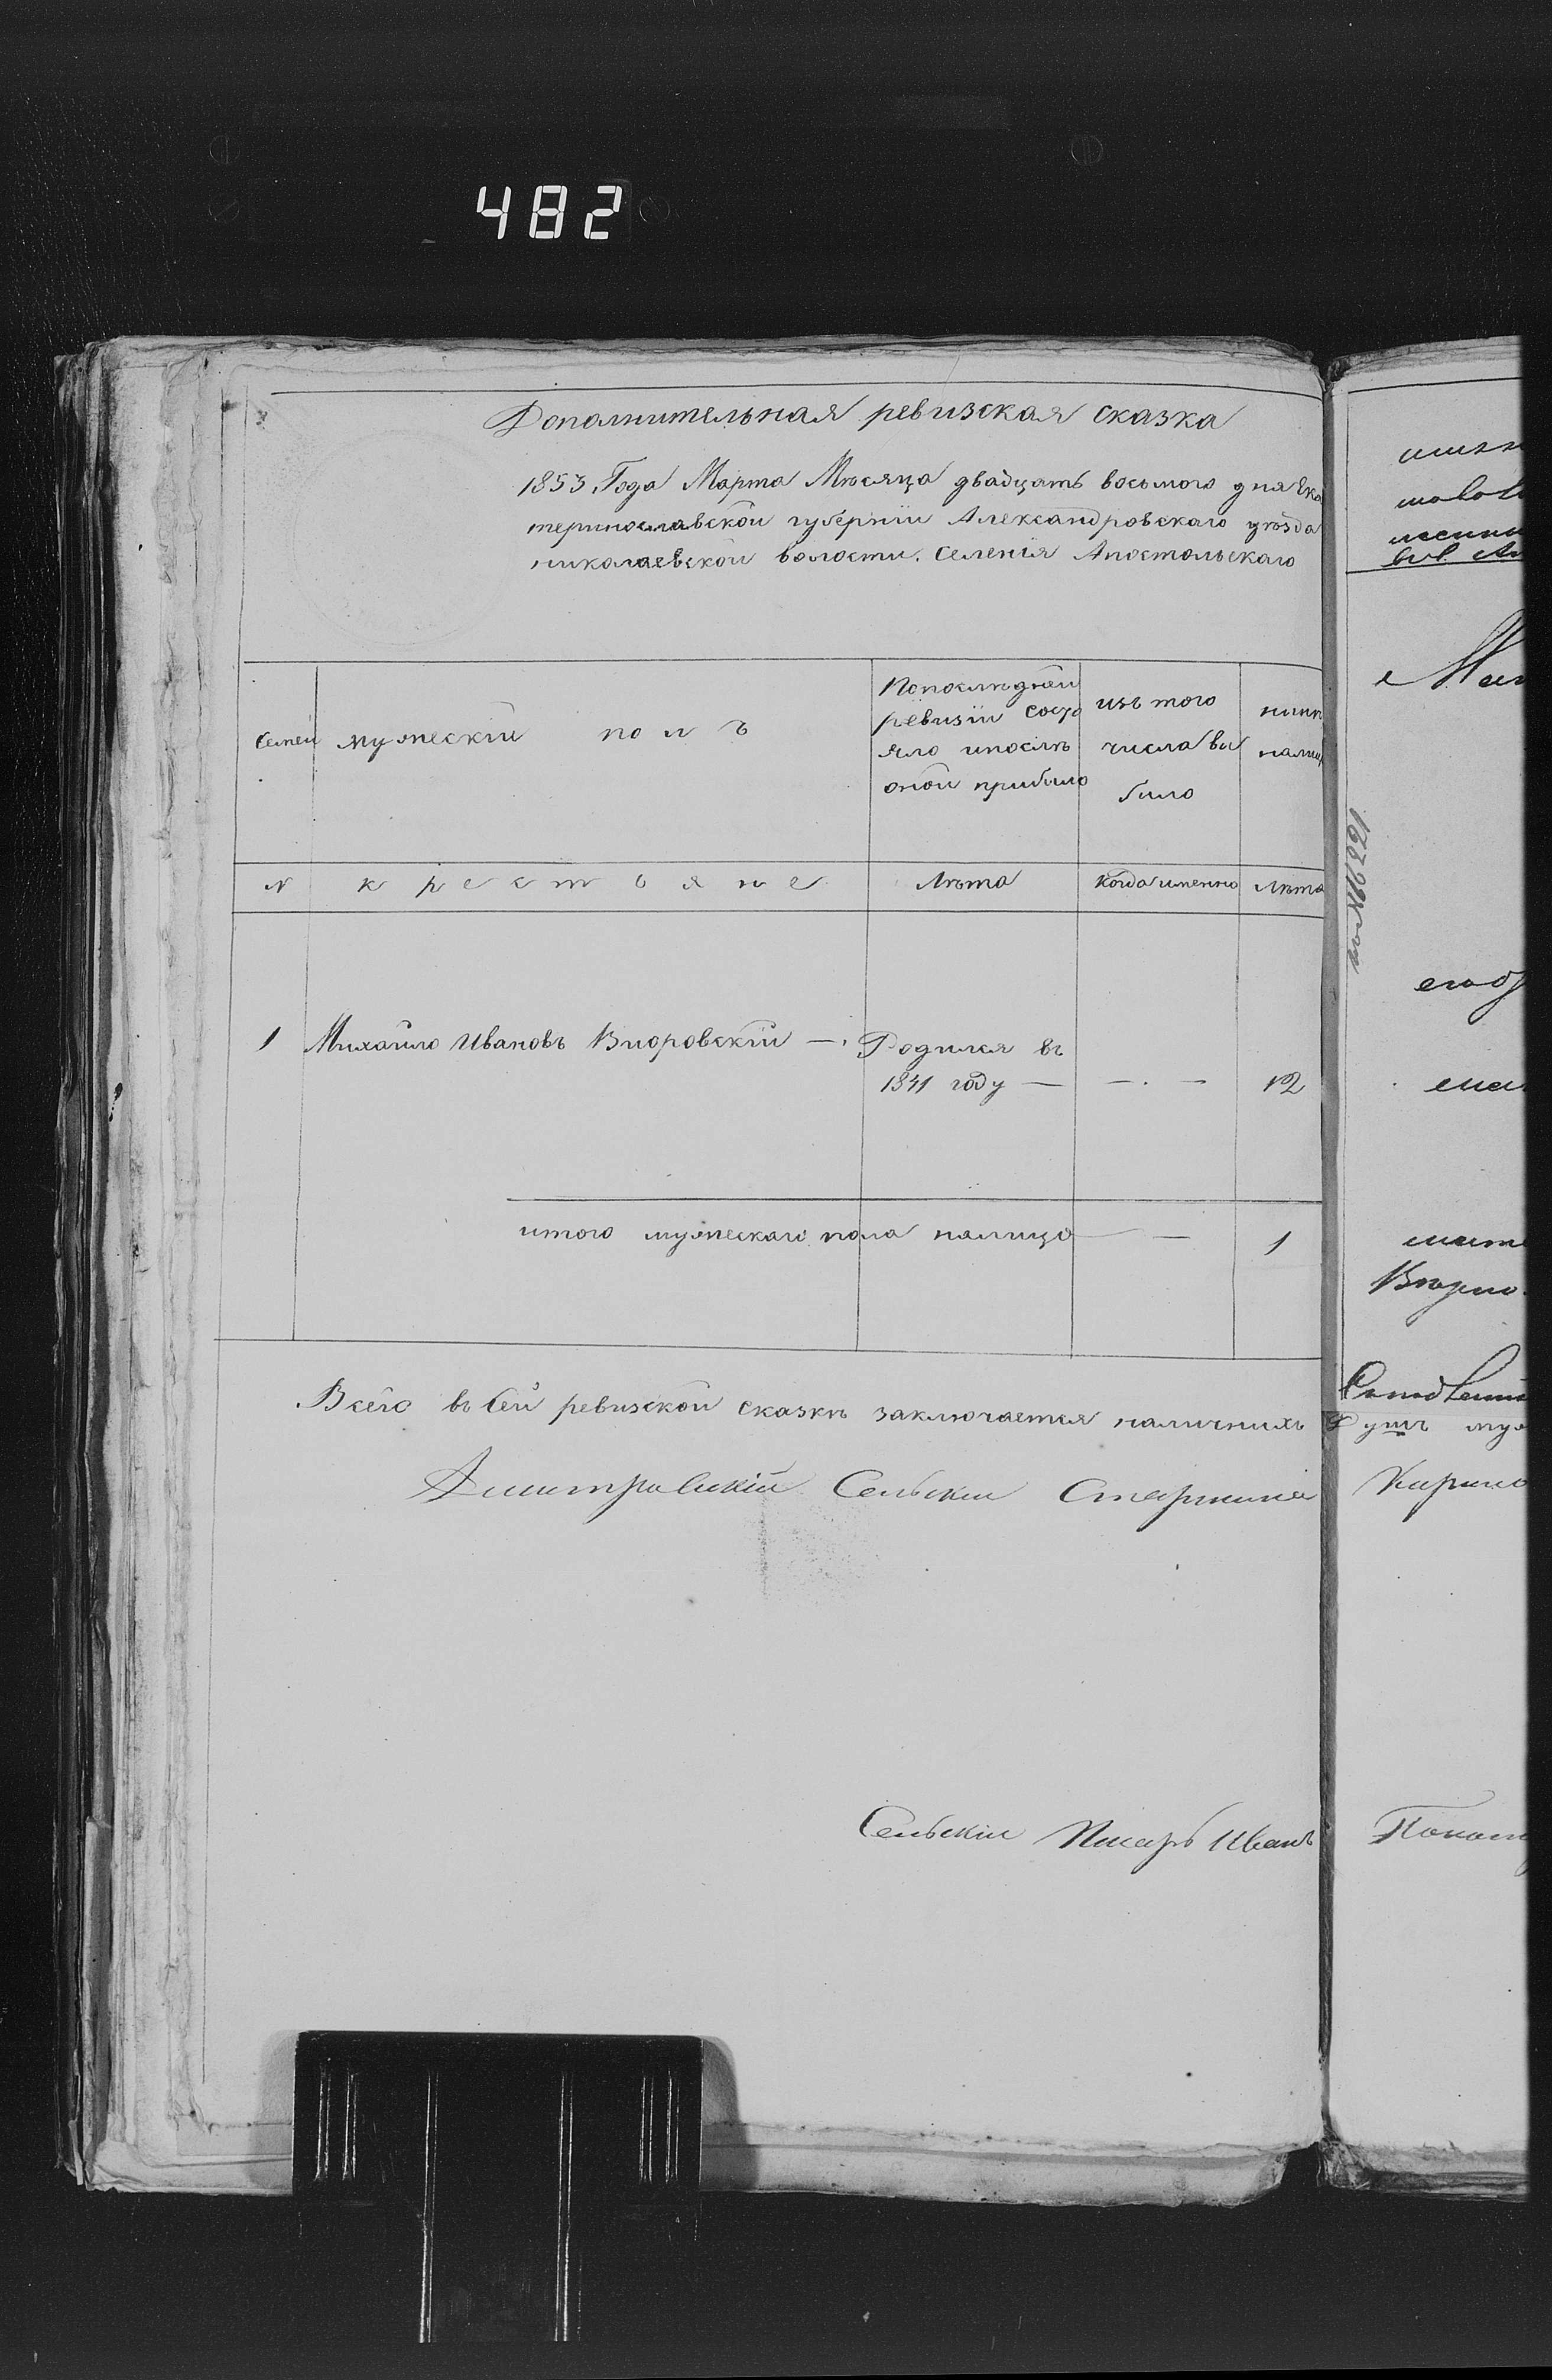 482
Дополнительная ревизская сказка
1853 Года Марта Мѣсяца двадцать восьмого дня Ека
теринославской губерніи Александровскаго уѣзда
николаевской волости. Селенія Апостольскаго
Семей
мужескій полъ
Попослѣдней
ревизіи состо
яло ипослѣ
оной прибыло
изъ того
числа вы
было
нынѣ
налиц
N
крестьяне
Лѣта
Когда именно
Лѣта
1 Михайло Ивановъ —. Родился въ
1841 году — —.— 12
итого мужескаго пола налицо — — 1
Всего въ Сей ревизской сказкѣ заключается наличныхъ Душъ муж
Дмитровскій Сельскій Старшина Кирило
Сельскій Писарь Иванъ
Вѣрно